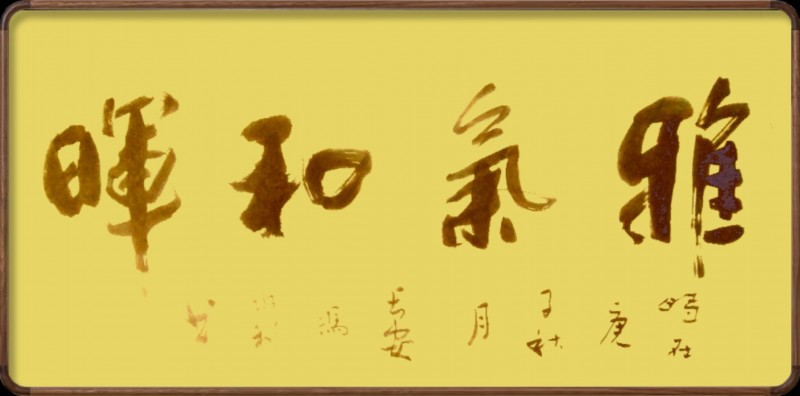 雅氣和暉
時在庚子秋月長安馮